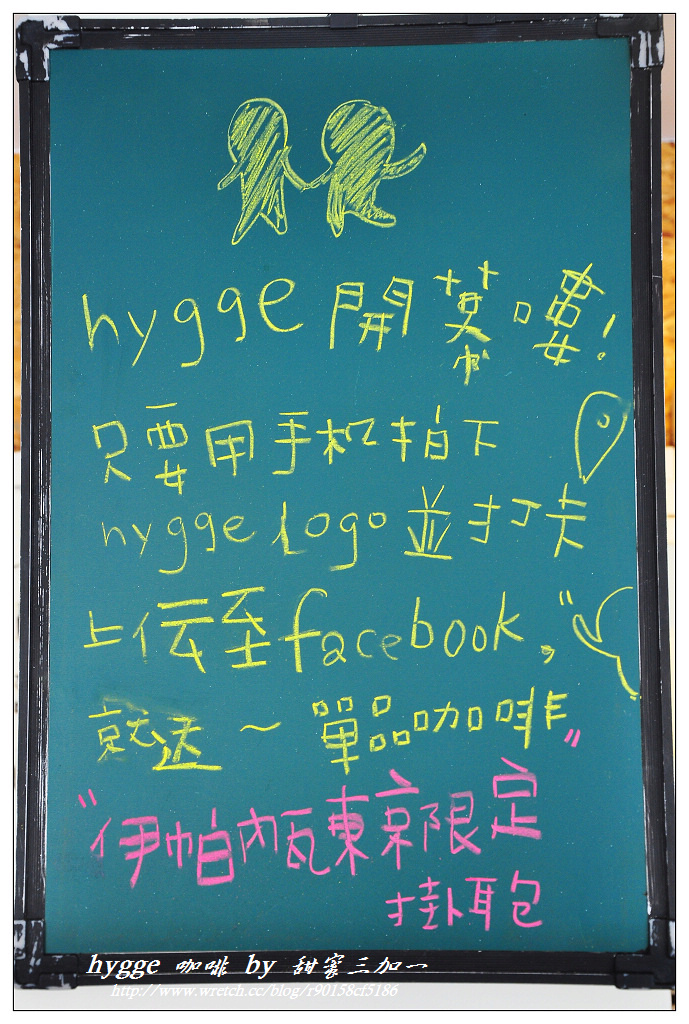 hygge 開幕嘍!
只要用手机拍下
hygge logo 並打卡
上伝至facebook,
就送～"單品咖啡"
"伊帕內瓦東京限定
掛耳包
hygge 咖啡 by 甜蜜三加一
http://www.wretch.cc/blog/r90158cf5186